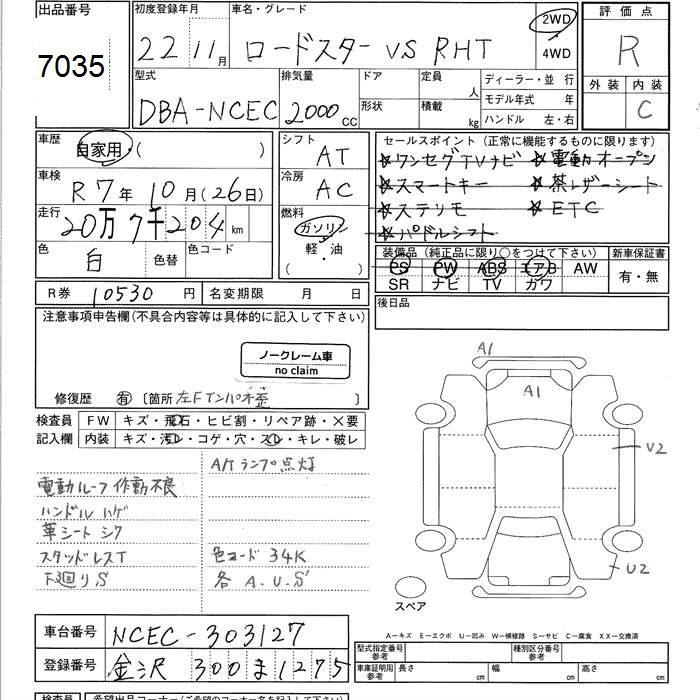 出品番号
7035
初度登録年月
22 11月
車名・グレード
ロードスター VS RHT
2WD
4WD
評価点
R
外装 内装
C
型式
DBA-NCEC
排気量
2000 CC
ドア
形状
定員 人
積載 kg
ディーラー・並行
モデル年式 年
ハンドル 左・右
車歴
自家用・( )
車検
R7年10月(26日)
走行
20万7千204 km
色
白
色替
色コード
シフト
AT
冷房
AC
燃料
ガソリン
軽・油
( )
セールスポイント(正常に機能するものに限ります)
☆ワンセグTVナビ ☆電動オープン
☆スマートキー ☆茶レザーシート
☆ステリモ ☆ETC
☆パドルシフト
装備品(純正品に限り○をつけて下さい)
PS PW ABS エアB AW
SR ナビ TV カワ
新車保証書
有・無
R券 10530 円
名変期限 月 日
後日品
注意事項申告欄(不具合内容等は具体的に記入して下さい)
ノークレーム車
no claim
修復歴 有 〔箇所 左Fインパネ歪 〕
検査員
記入欄
FW キズ・飛石・ヒビ割・リペア跡・×要
内装 キズ・汚レ・コゲ・穴・スレ・キレ・破レ
A/T ランプ点灯
電動ルーフ作動不良
ハンドル ハゲ
革シート シワ
スタッドレスT
色コード 34K
下廻りS
各 A.U.S
A1
A1
U2
U2
スペア
A―キズ E―エクボ U―凹み W―補修跡 S―サビ C―腐食 XX―交換済
車台番号 NCEC-303127
登録番号 金沢 300 ま 1275
型式指定番号
参考
種別区分番号
参考
車庫証明用
参考
長さ cm
幅 cm
高さ cm
検査員
希望出品コーナー(ご希望のコーナー名を記入下さい)